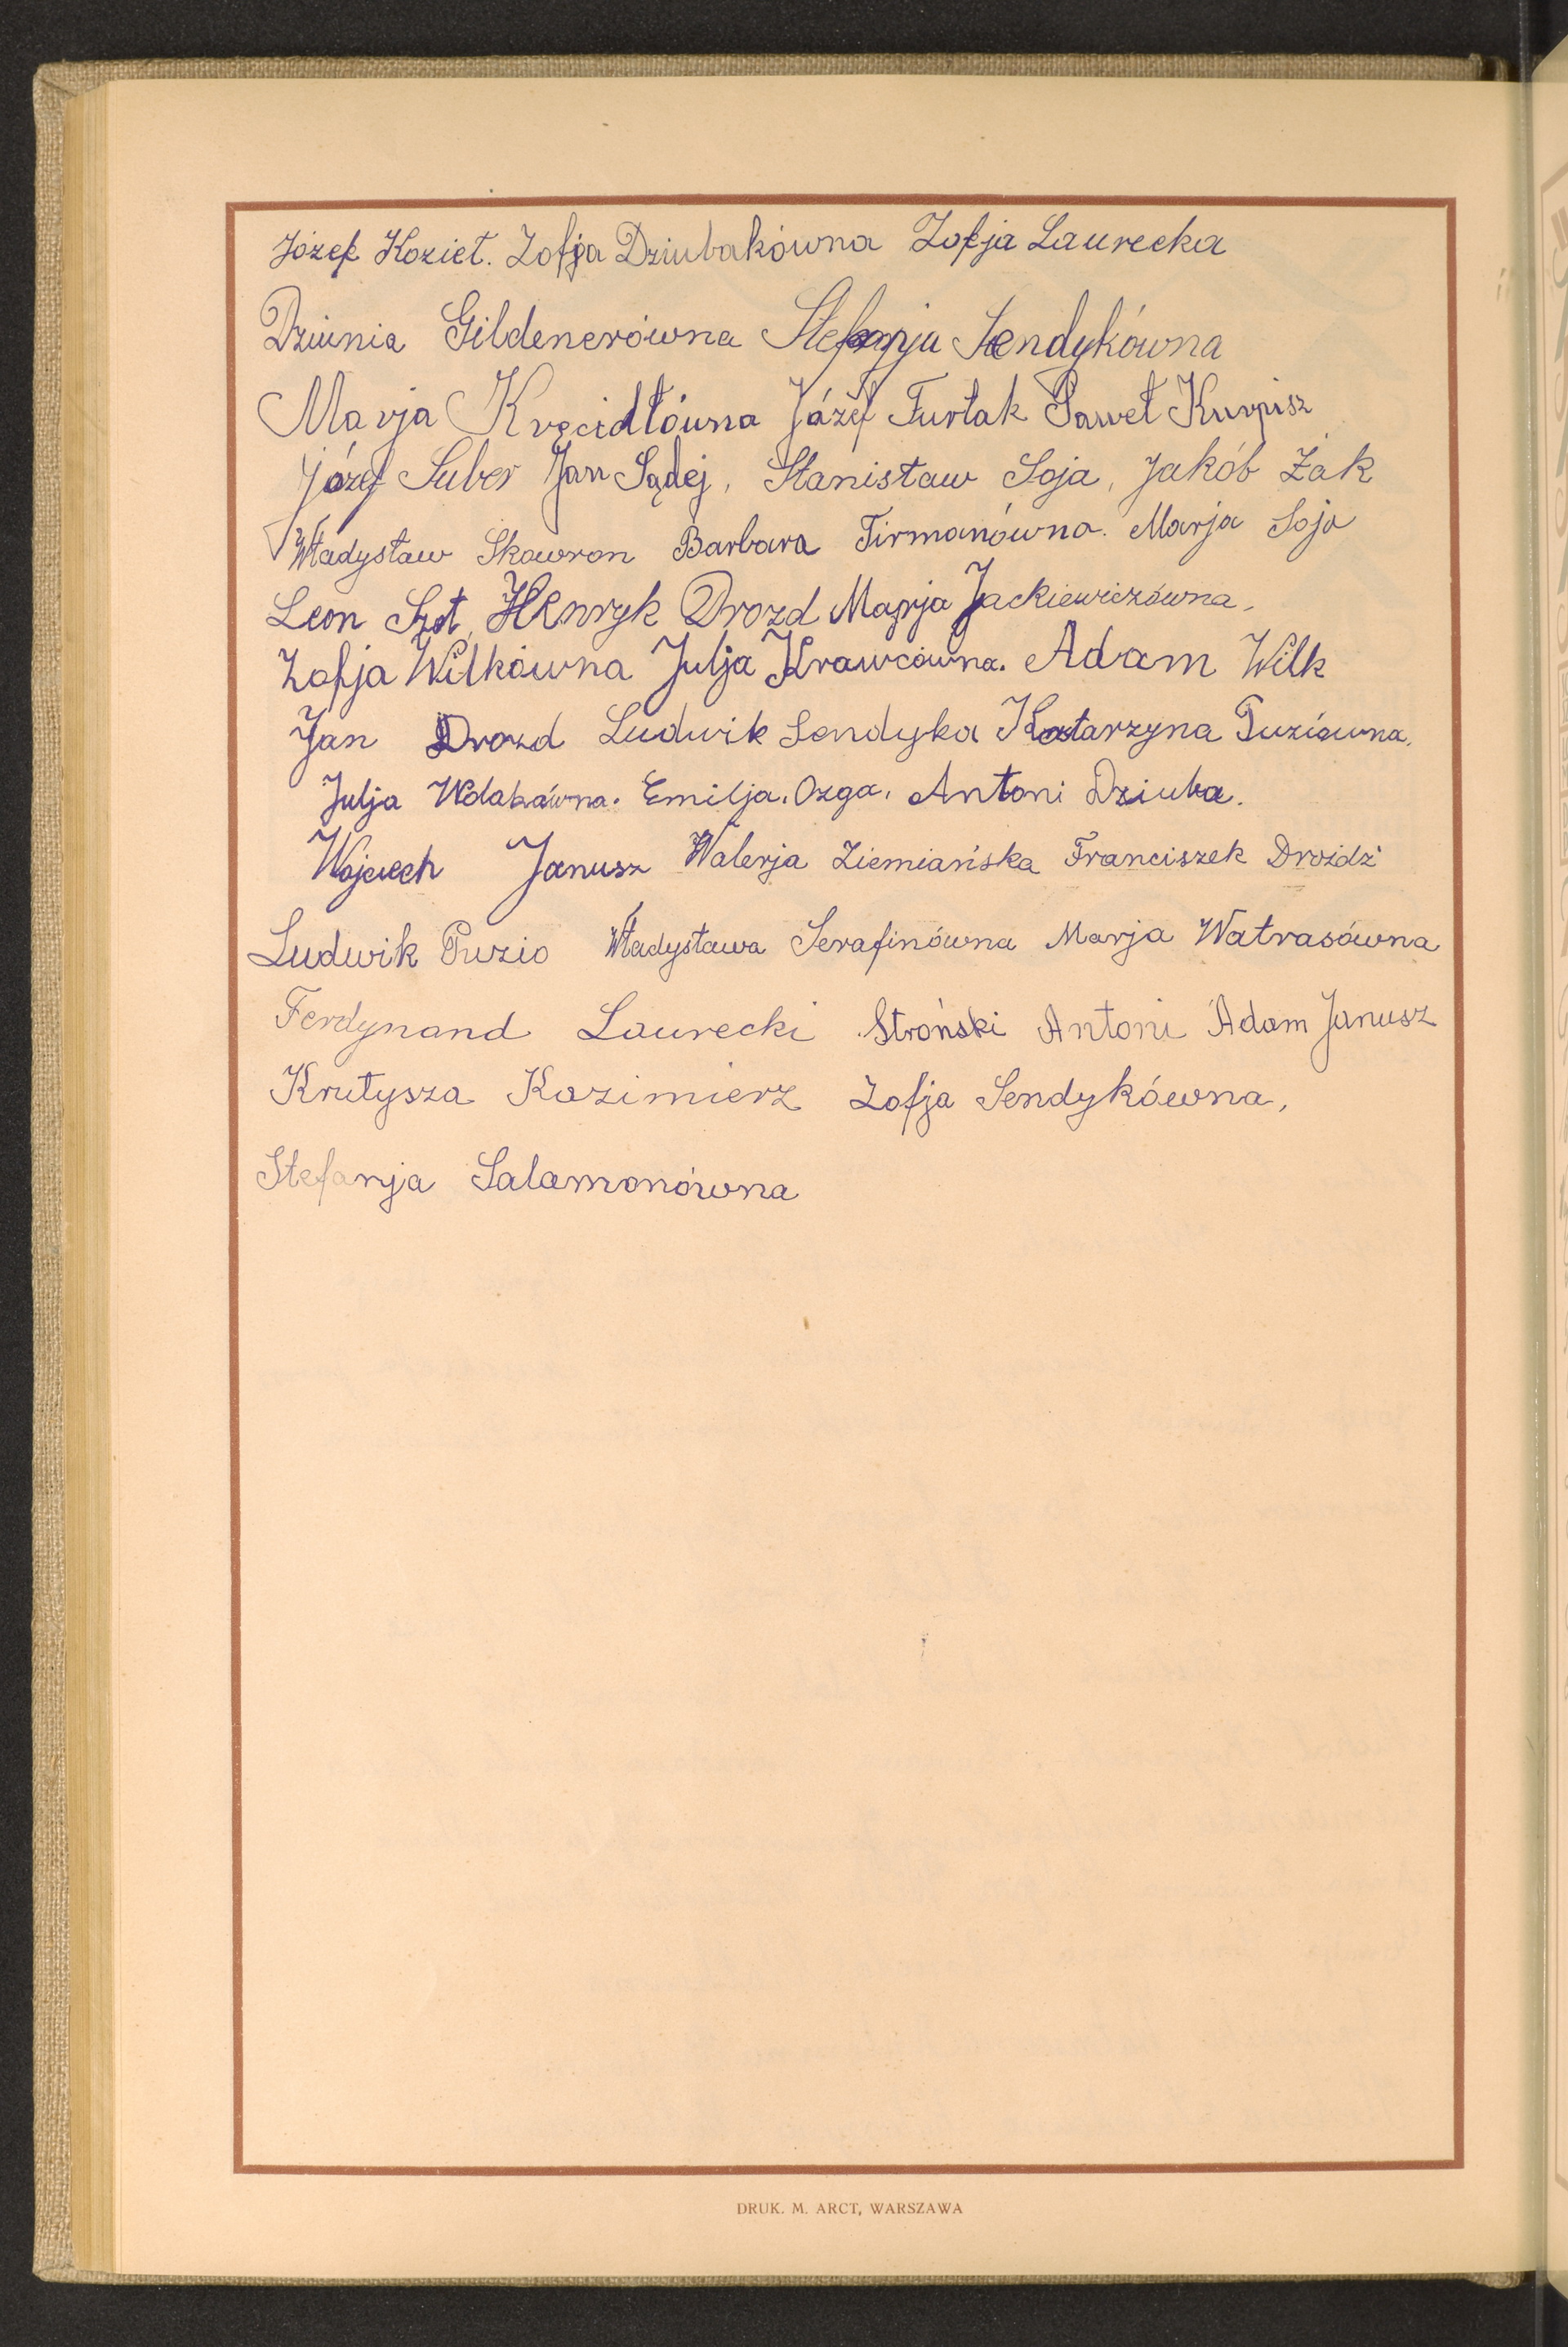 Józef Kozieł. Zofja Dziubakówna Zofja Laurecka
Dziunia Gildenerówna Stefanja Sendykówna
Marja Kręcidłówna Józef Furtak Paweł Kurpisz
Józef Suber Jan Sądej, Stanisław Soja, Jakób Żak
Władysław Skowron Barbara Firmanówna. Marja Soja
Leon Szot, Henryk Drozd Marja Jackiewiczówna,
Zofja Wilkówna Julja Krawcówna. Adam Wilk
Jan Drozd Ludwik Sendyka Katarzyna Puziówna,
Julja Emilja, Ozga, Antoni Dziuba.
Wojciech Janusz Walerja Ziemiańska Franciszek Drożdż
Ludwik Puzio Władysława Serafinówna Marja Watrasówna
Ferdynand Laurecki Stroński Antoni Adam Janusz
Krutysza Kazimierz Zofja Sendykówna,
Stefanja Salamonówna
DRUK. M. ARCT, WARSZAWA